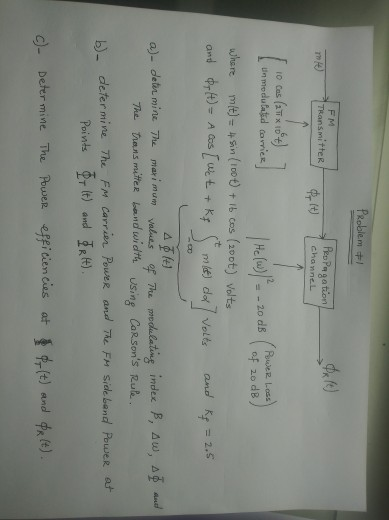 Problem #1
m(t)
FM Transmitter
Φ_T(t)
Propagation channel
Φ_R(t)
[10 cos(2π×10⁶t) unmodulated carrier]
|Hc(ω)|² = -20 dB (Power Loss of 20 dB)
where m(t) = 4 sin(100t) + 16 cos(200t) volts
and Φ_T(t) = A cos[ω_c t + K_f ∫_{-∞}^{t} m(α) dα] volts and K_f = 2.5
ΔΦ(t)
a)- determine The maximum values of The modulating index β, Δω, ΔΦ and
The transmitter bandwidth using Carson's Rule.
b)- determine The FM carrier Power and The FM sideband Power at
Points Φ_T(t) and Φ_R(t).
c)- Determine The Power efficiencies at Φ_T(t) and Φ_R(t).